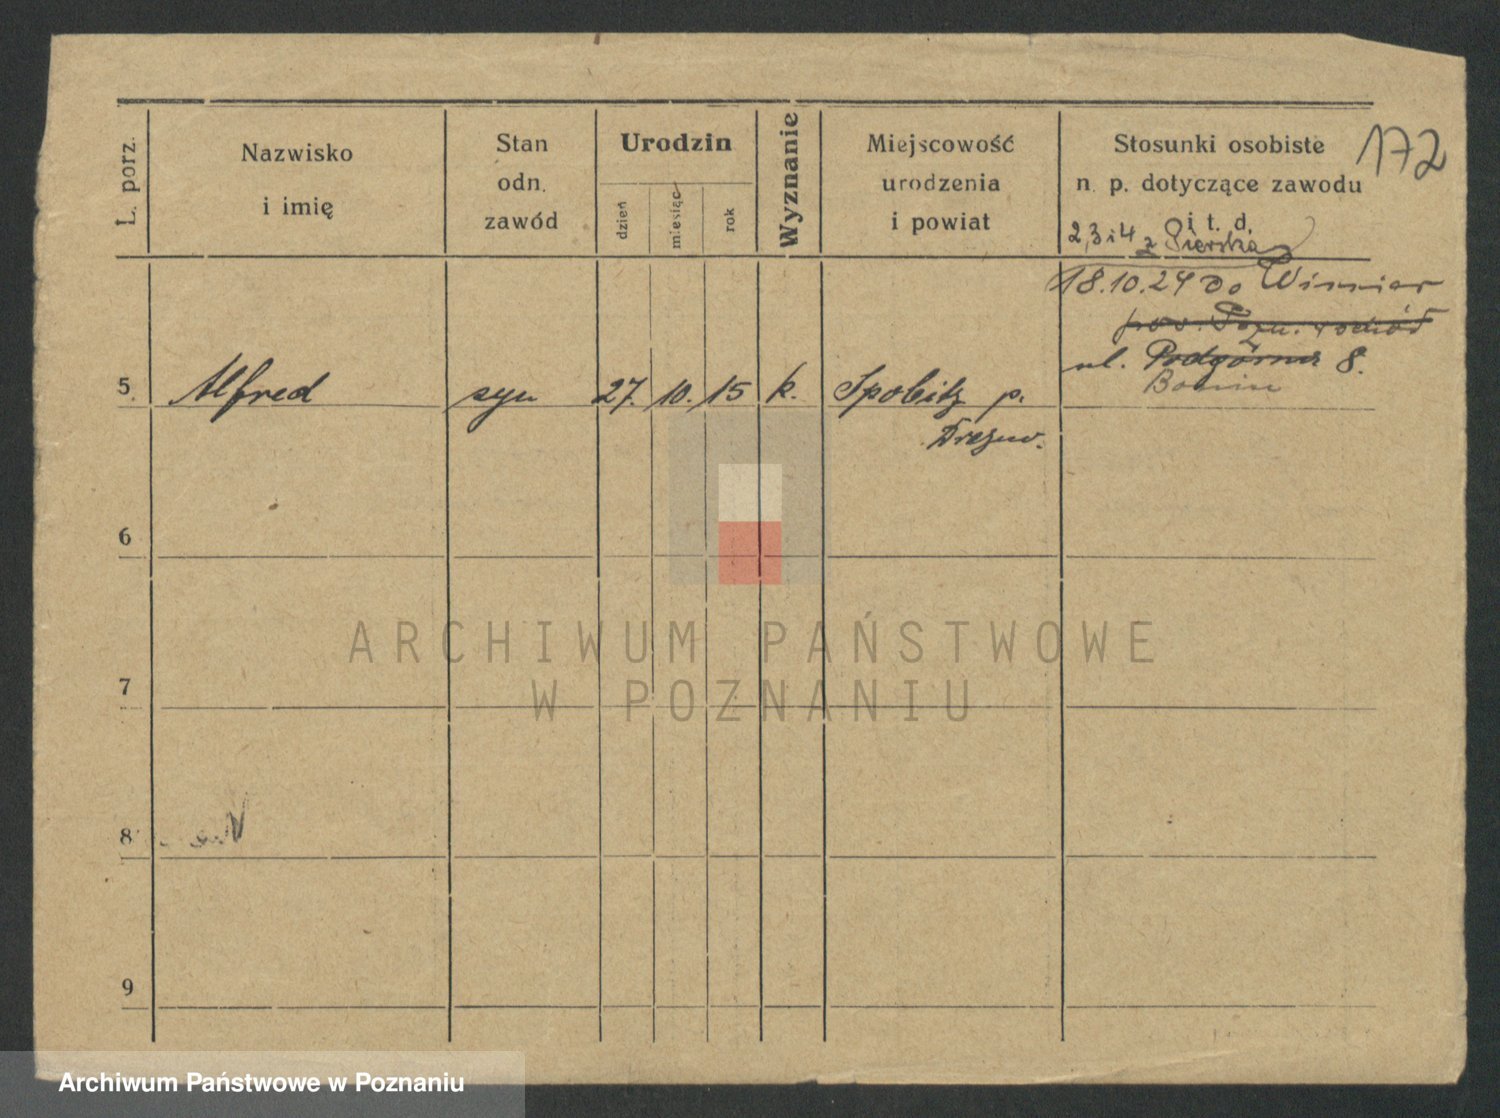 172
L. porz.
Nazwisko
i imię
Stan
odn.
zawód
Urodzin
dzień
miesiąc
rok
Wyznanie
Miejscowość
urodzenia
i powiat
Stosunki osobiste
n. p. dotyczące zawodu
i t. d.
2, 3 i 4 z Pierska
18.10.24 do Winniar
pow. Pozn. wschód
ul. Podgórna 8.
5. Alfred syn 27. 10. 15 k. Spobitz p.
Drezno.
6
7
8
9
ARCHIWUM PAŃSTWOWE
W POZNANIU
Archiwum Państwowe w Poznaniu